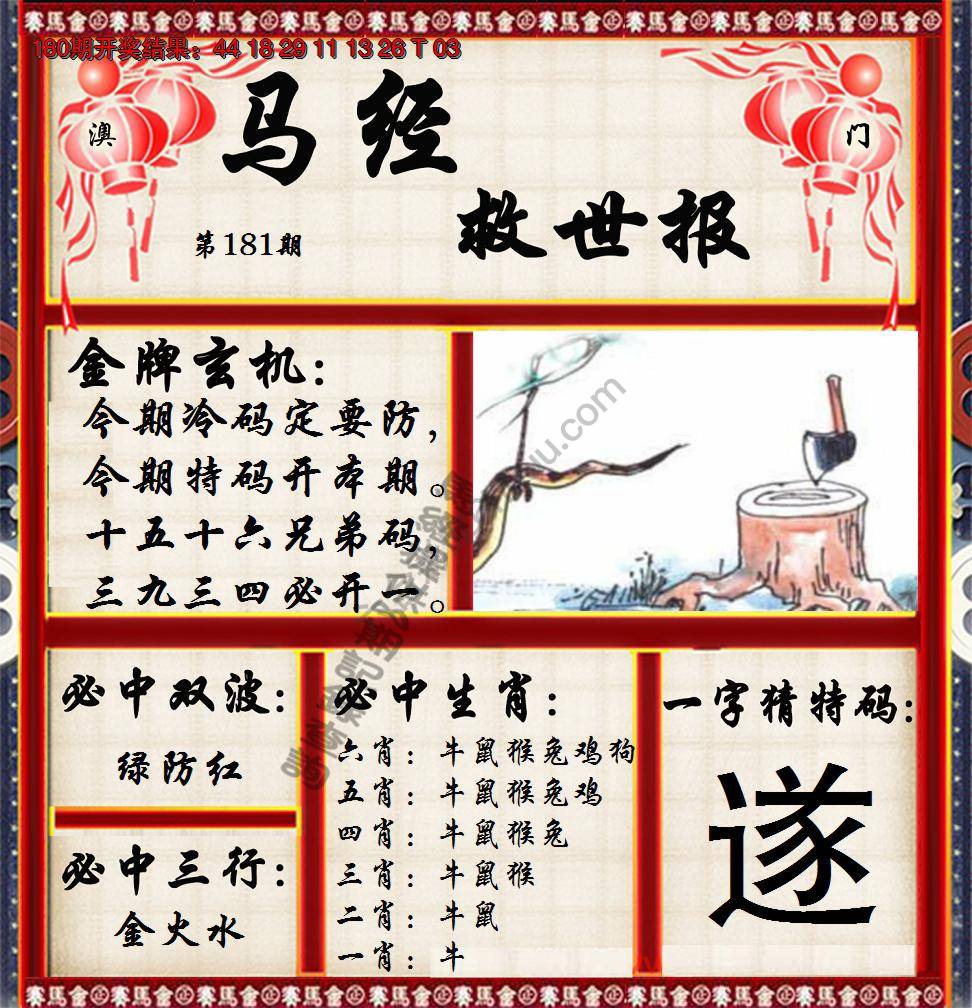 180期开奖结果：44 18 29 11 13 26 T 03
澳
门
马经
救世报
第181期
金牌玄机：
今期冷码定要防，
今期特码开本期。
十五十六兄弟码，
三九三四必开一。
必中双波：
绿防红
必中三行：
金火水
必中生肖：
六肖：牛鼠猴兔鸡狗
五肖：牛鼠猴兔鸡
四肖：牛鼠猴兔
三肖：牛鼠猴
二肖：牛鼠
一肖：牛
一字猜特码：
遂